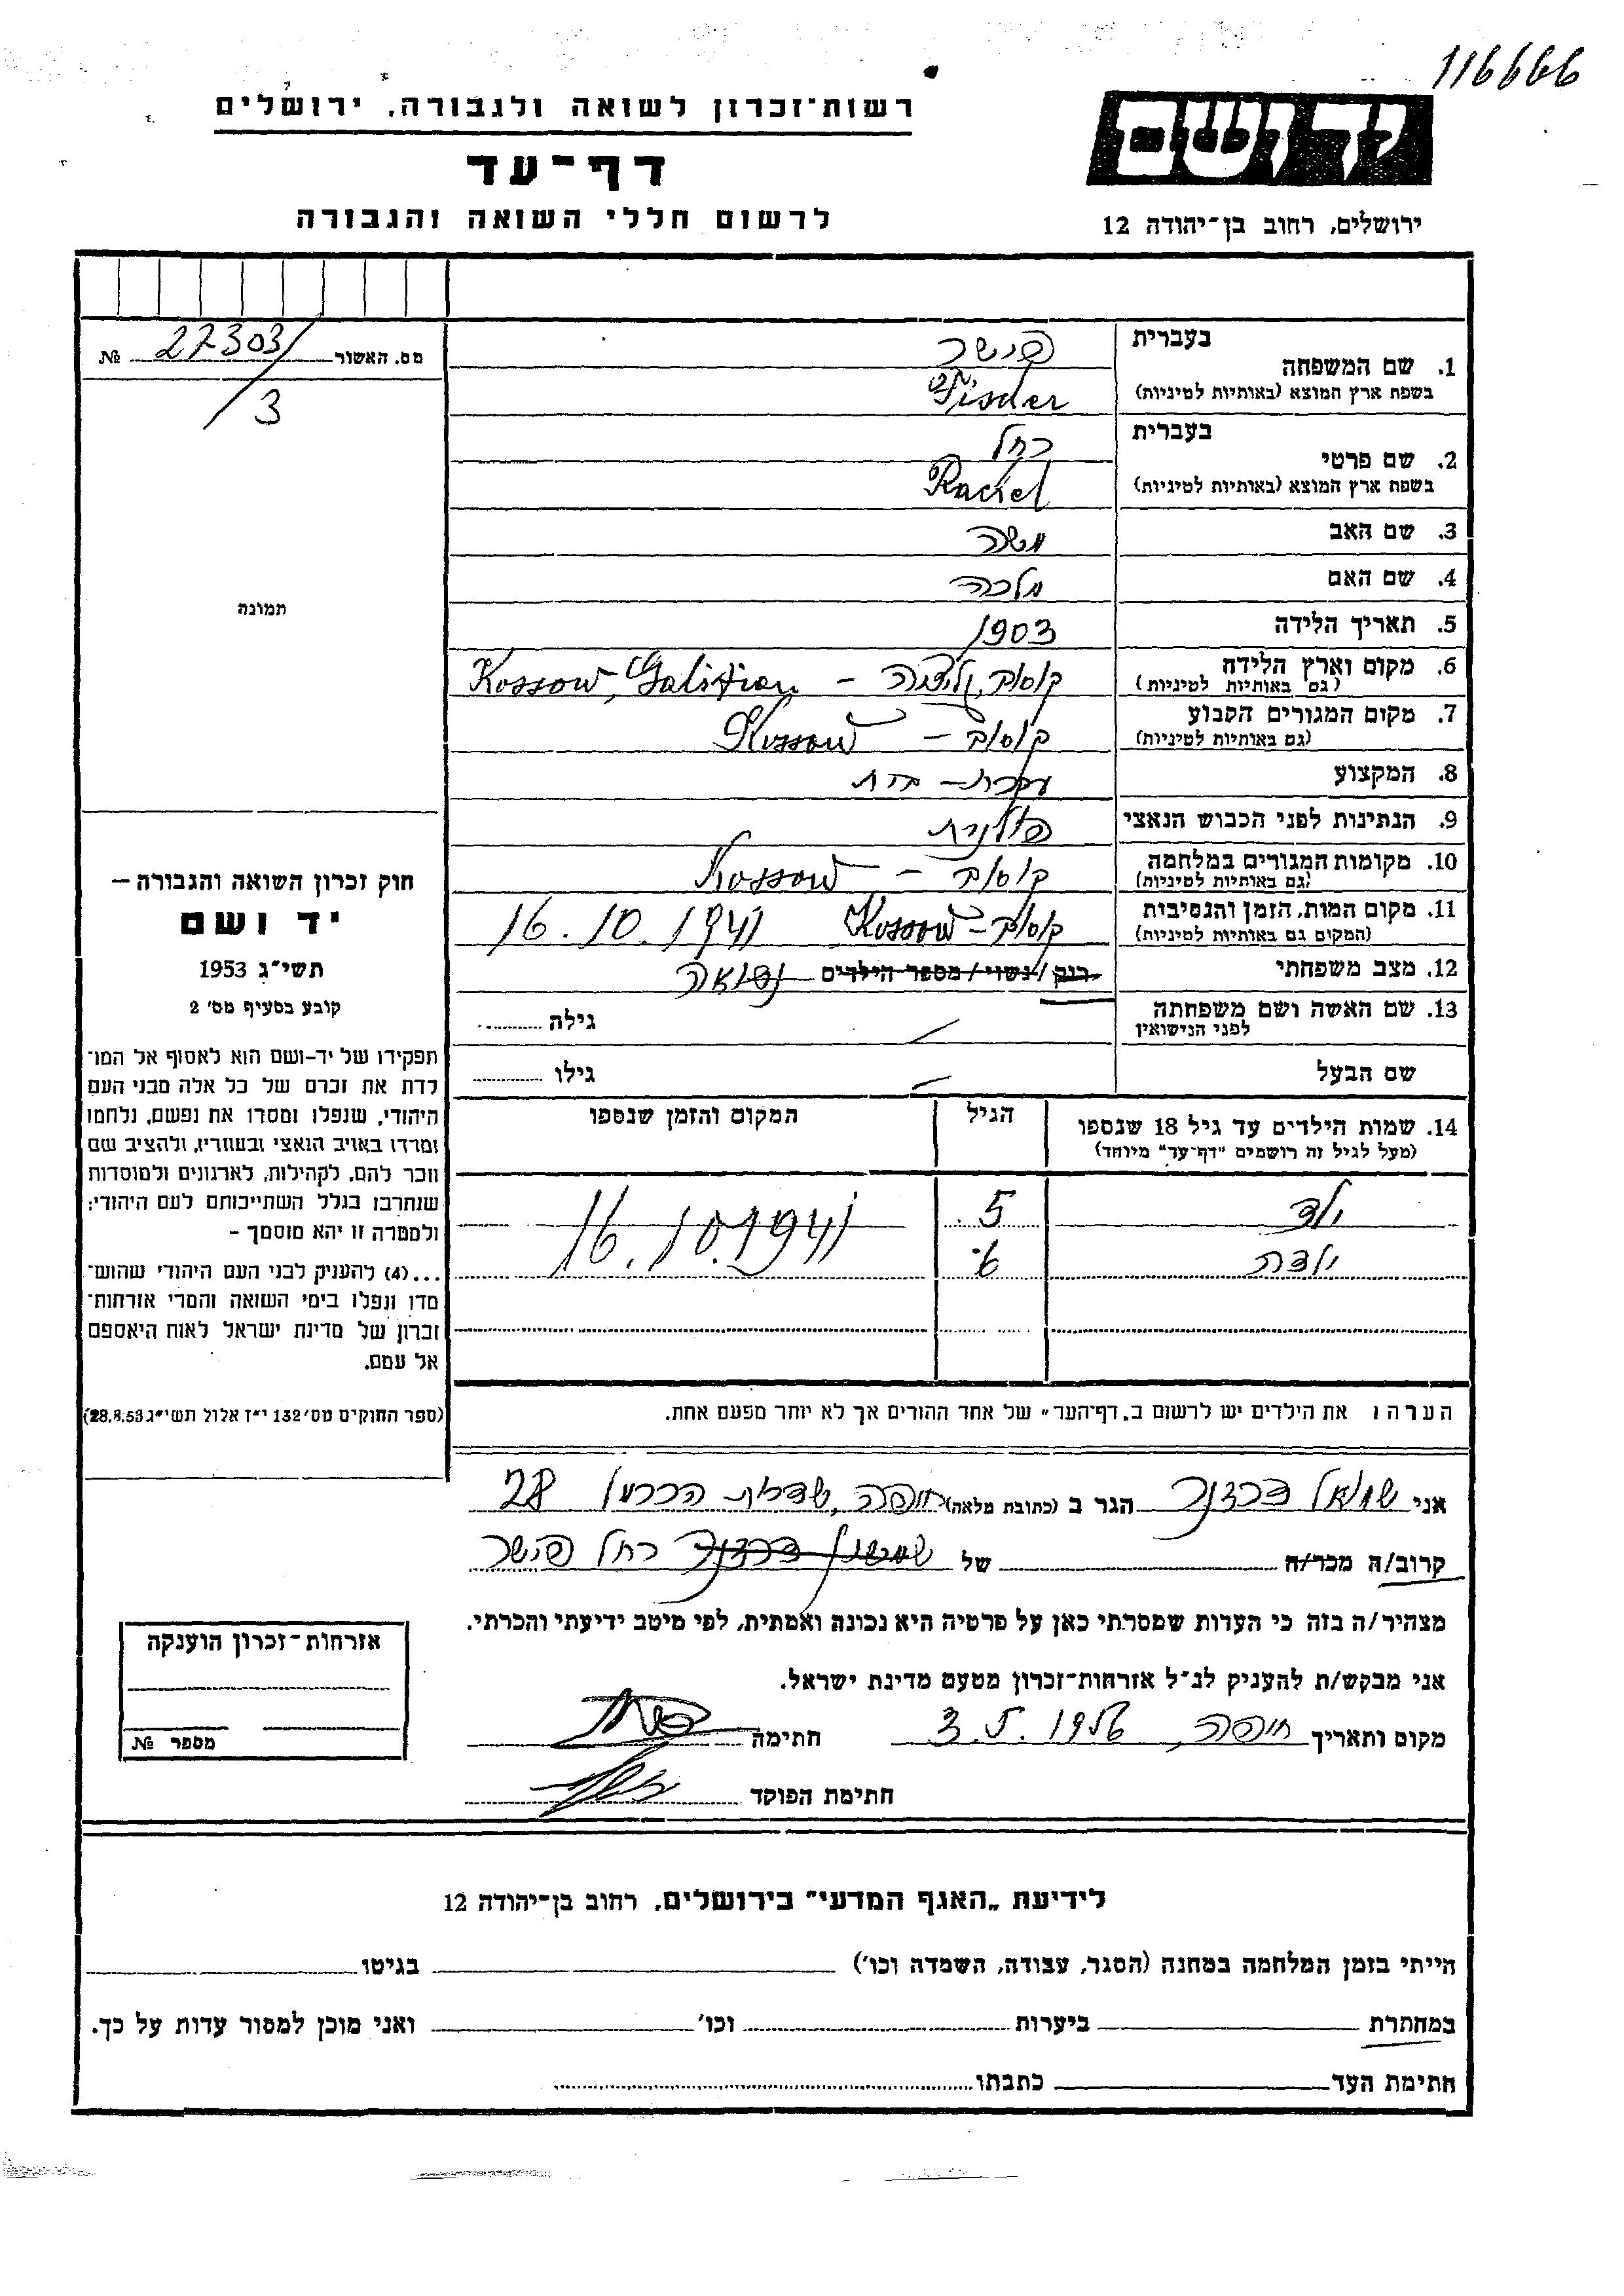 116666
רשות־זכרון לשואה ולגבורה, ירושלים
יד ושם
דף־עד
לרשום חללי השואה והגבורה
ירושלים, רחוב בן־יהודה 12
מס. האשור 27303/3 №
תמונה
חוק זכרון השואה והגבורה –
יד ושם
תשי"ג 1953
קובע בסעיף מס' 2
תפקידו של יד-ושם הוא לאסוף אל המו־
לדת את זכרם של כל אלה מבני העם
היהודי, שנפלו ומסרו את נפשם, נלחמו
ומרדו באויב הנאצי ובעוזריו, ולהציב שם
וזכר להם, לקהילות, לארגונים ולמוסדות
שנחרבו בגלל השתייכותם לעם היהודי;
ולמטרה זו יהא מוסמך –
...(4) להעניק לבני העם היהודי שהוש־
מדו ונפלו בימי השואה והמרי אזרחות־
זכרון של מדינת ישראל לאות היאספם
אל עמם.
(ספר החוקים מס' 132 י"ז אלול תשי"ג 28.8.53)
בעברית פישר
1. שם המשפחה
בשפת ארץ המוצא (באותיות לטיניות) Fischer
בעברית רחל
2. שם פרטי
בשפת ארץ המוצא (באותיות לטיניות) Rachel
3. שם האב משה
4. שם האם מלכה
5. תאריך הלידה 1903
6. מקום וארץ הלידה קוסוב, גליציה – Kossow, Galizien
(גם באותיות לטיניות)
7. מקום המגורים הקבוע קוסוב – Kossow
(גם באותיות לטיניות)
8. המקצוע עקרת – בית
9. הנתינות לפני הכבוש הנאצי פולנית
10. מקומות המגורים במלחמה קוסוב – Kossow
(גם באותיות לטיניות)
11. מקום המות, הזמן והנסיבות קוסוב – Kossow 16.10.1941
(המקום גם באותיות לטיניות)
12. מצב משפחתי רווק / נשוי / מספר הילדים נשואה
13. שם האשה ושם משפחתה גילה
לפני הנישואין
שם הבעל גילו
14. שמות הילדים עד גיל 18 שנספו הגיל המקום והזמן שנספו
(מעל לגיל זה רושמים "דף־עד" מיוחד)
ילד 5 16.10.1941
ילדה 6
הערה: את הילדים יש לרשום ב„דף־העד" של אחד ההורים אך לא יותר מפעם אחת.
אני שמואל הגר ב (כתובת מלאה) חיפה, שדרות הכרמל 28
קרוב/ה מכר/ה של רחל פישר
מצהיר/ה בזה כי העדות שמסרתי כאן על פרטיה היא נכונה ואמתית, לפי מיטב ידיעתי והכרתי.
אני מבקש/ת להעניק לנ"ל אזרחות־זכרון מטעם מדינת ישראל.
מקום ותאריך חיפה, 3.5.1956 חתימה
חתימת הפוקד
אזרחות־זכרון הוענקה
מספר №
לידיעת „האגף המדעי" בירושלים, רחוב בן־יהודה 12
הייתי בזמן המלחמה במחנה (הסגר, עבודה, השמדה וכו') בגיטו
במחתרת ביערות וכו' ואני מוכן למסור עדות על כך.
חתימת העד כתבתו